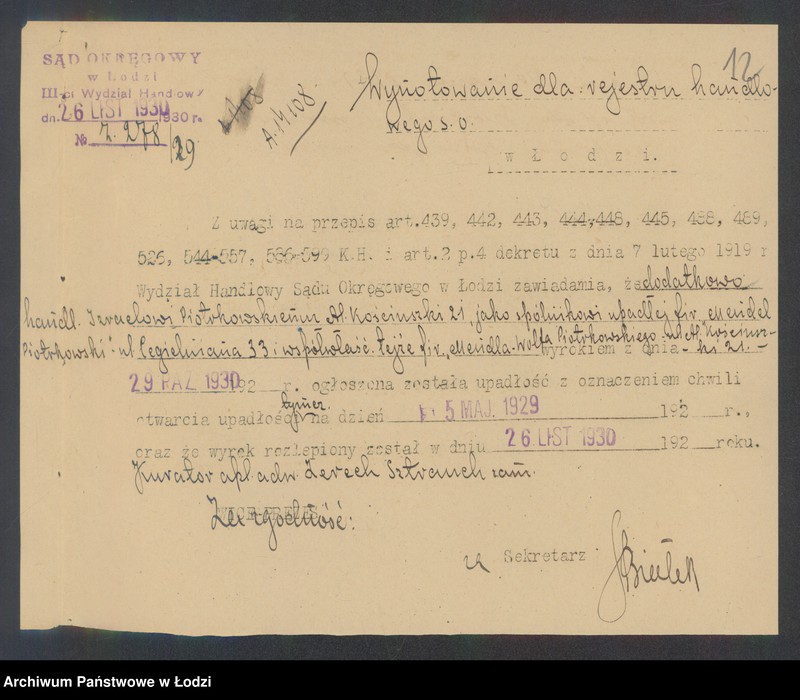 12
SĄD OKRĘGOWY
w Łodzi
III-ci Wydział Handlowy
dn. 26 LIST 1930 1930 r.
№ Z. 278/29
A. 14108.
Wynotowanie dla rejestru handlo-
wego S.O.
w Łodzi.
Z uwagi na przepis art. 439, 442, 443, 444, 448, 445, 488, 489,
526, 544-557, 586-599 K.H. i art. 2 p. 4 dekretu z dnia 7 lutego 1919 r
Wydział Handlowy Sądu Okręgowego w Łodzi zawiadamia, że dodatkowo
handl. Izraelowi Piotrkowskiemu Al. Kościuszki 21, jako spólnikowi upadłej fir. „Mendel
Piotrkowski" ul. Cegielniana 33 i współwłaśc. tejże fir. „Mendla-Wolfa Piotrkowskiego, ul. Al. Kościusz-
wyrokiem z dnia - ki 21. -
29 PAŹ 1930 192 r. ogłoszona została upadłość z oznaczeniem chwili
otwarcia upadłości tymcz. na dzień 5 MAJ. 1929 192 r.,
oraz że wyrok rozlepiony został w dniu 26 LIST 1930 192 roku.
Kurator apl. adw. Zerech Sztrauch zam.
Za zgodność:
Sekretarz
Archiwum Państwowe w Łodzi